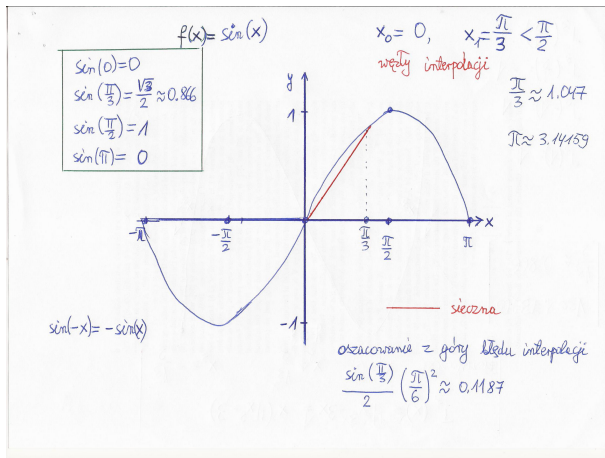 f(x)= sin(x)
x₀= 0, x₁=π/3 < π/2
węzły interpolacji
sin(0)=0
sin(π/3)=√3/2≈0.866
sin(π/2)=1
sin(π)= 0
π/3≈1.047
π≈3.14159
y
1
-π
-π/2
π/3
π/2
π
x
-1
sieczna
sin(-x)= -sin(x)
oszacowanie z góry błędu interpolacji
sin(π/3)/2 (π/6)²≈0.1187